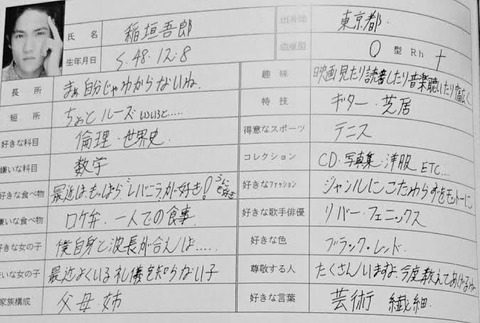 氏名 稲垣吾郎
生年月日 S.48.12.8
長所 まぁ自分じゃわからないね。
短所 ちょとルーズ
好きな科目 倫理・世界史
嫌いな科目 数学
好きな食べ物 最近はもっぱらレバニラ炒め好き!
嫌いな食べ物 ロケ弁. 一人での食事
好きな女の子 僕自身と波長が合えば……
嫌いな女の子 最近よくいる礼儀を知らない子
家族構成 父母姉
出身地 東京都.
血液型 O 型 Rh +
趣味 映画見たり読書したり音楽聴いたり幅広く
特技 ギター・芝居
得意なスポーツ テニス
コレクション CD・写真集・洋服 ETC...
好きなファッション ジャンルにこだわらず
好きな歌手俳優 リバー・フェニックス
好きな色 ブラック・レッド.
尊敬する人 たくさんいますよ、今度教えてあげるよ
好きな言葉 芸術 繊細